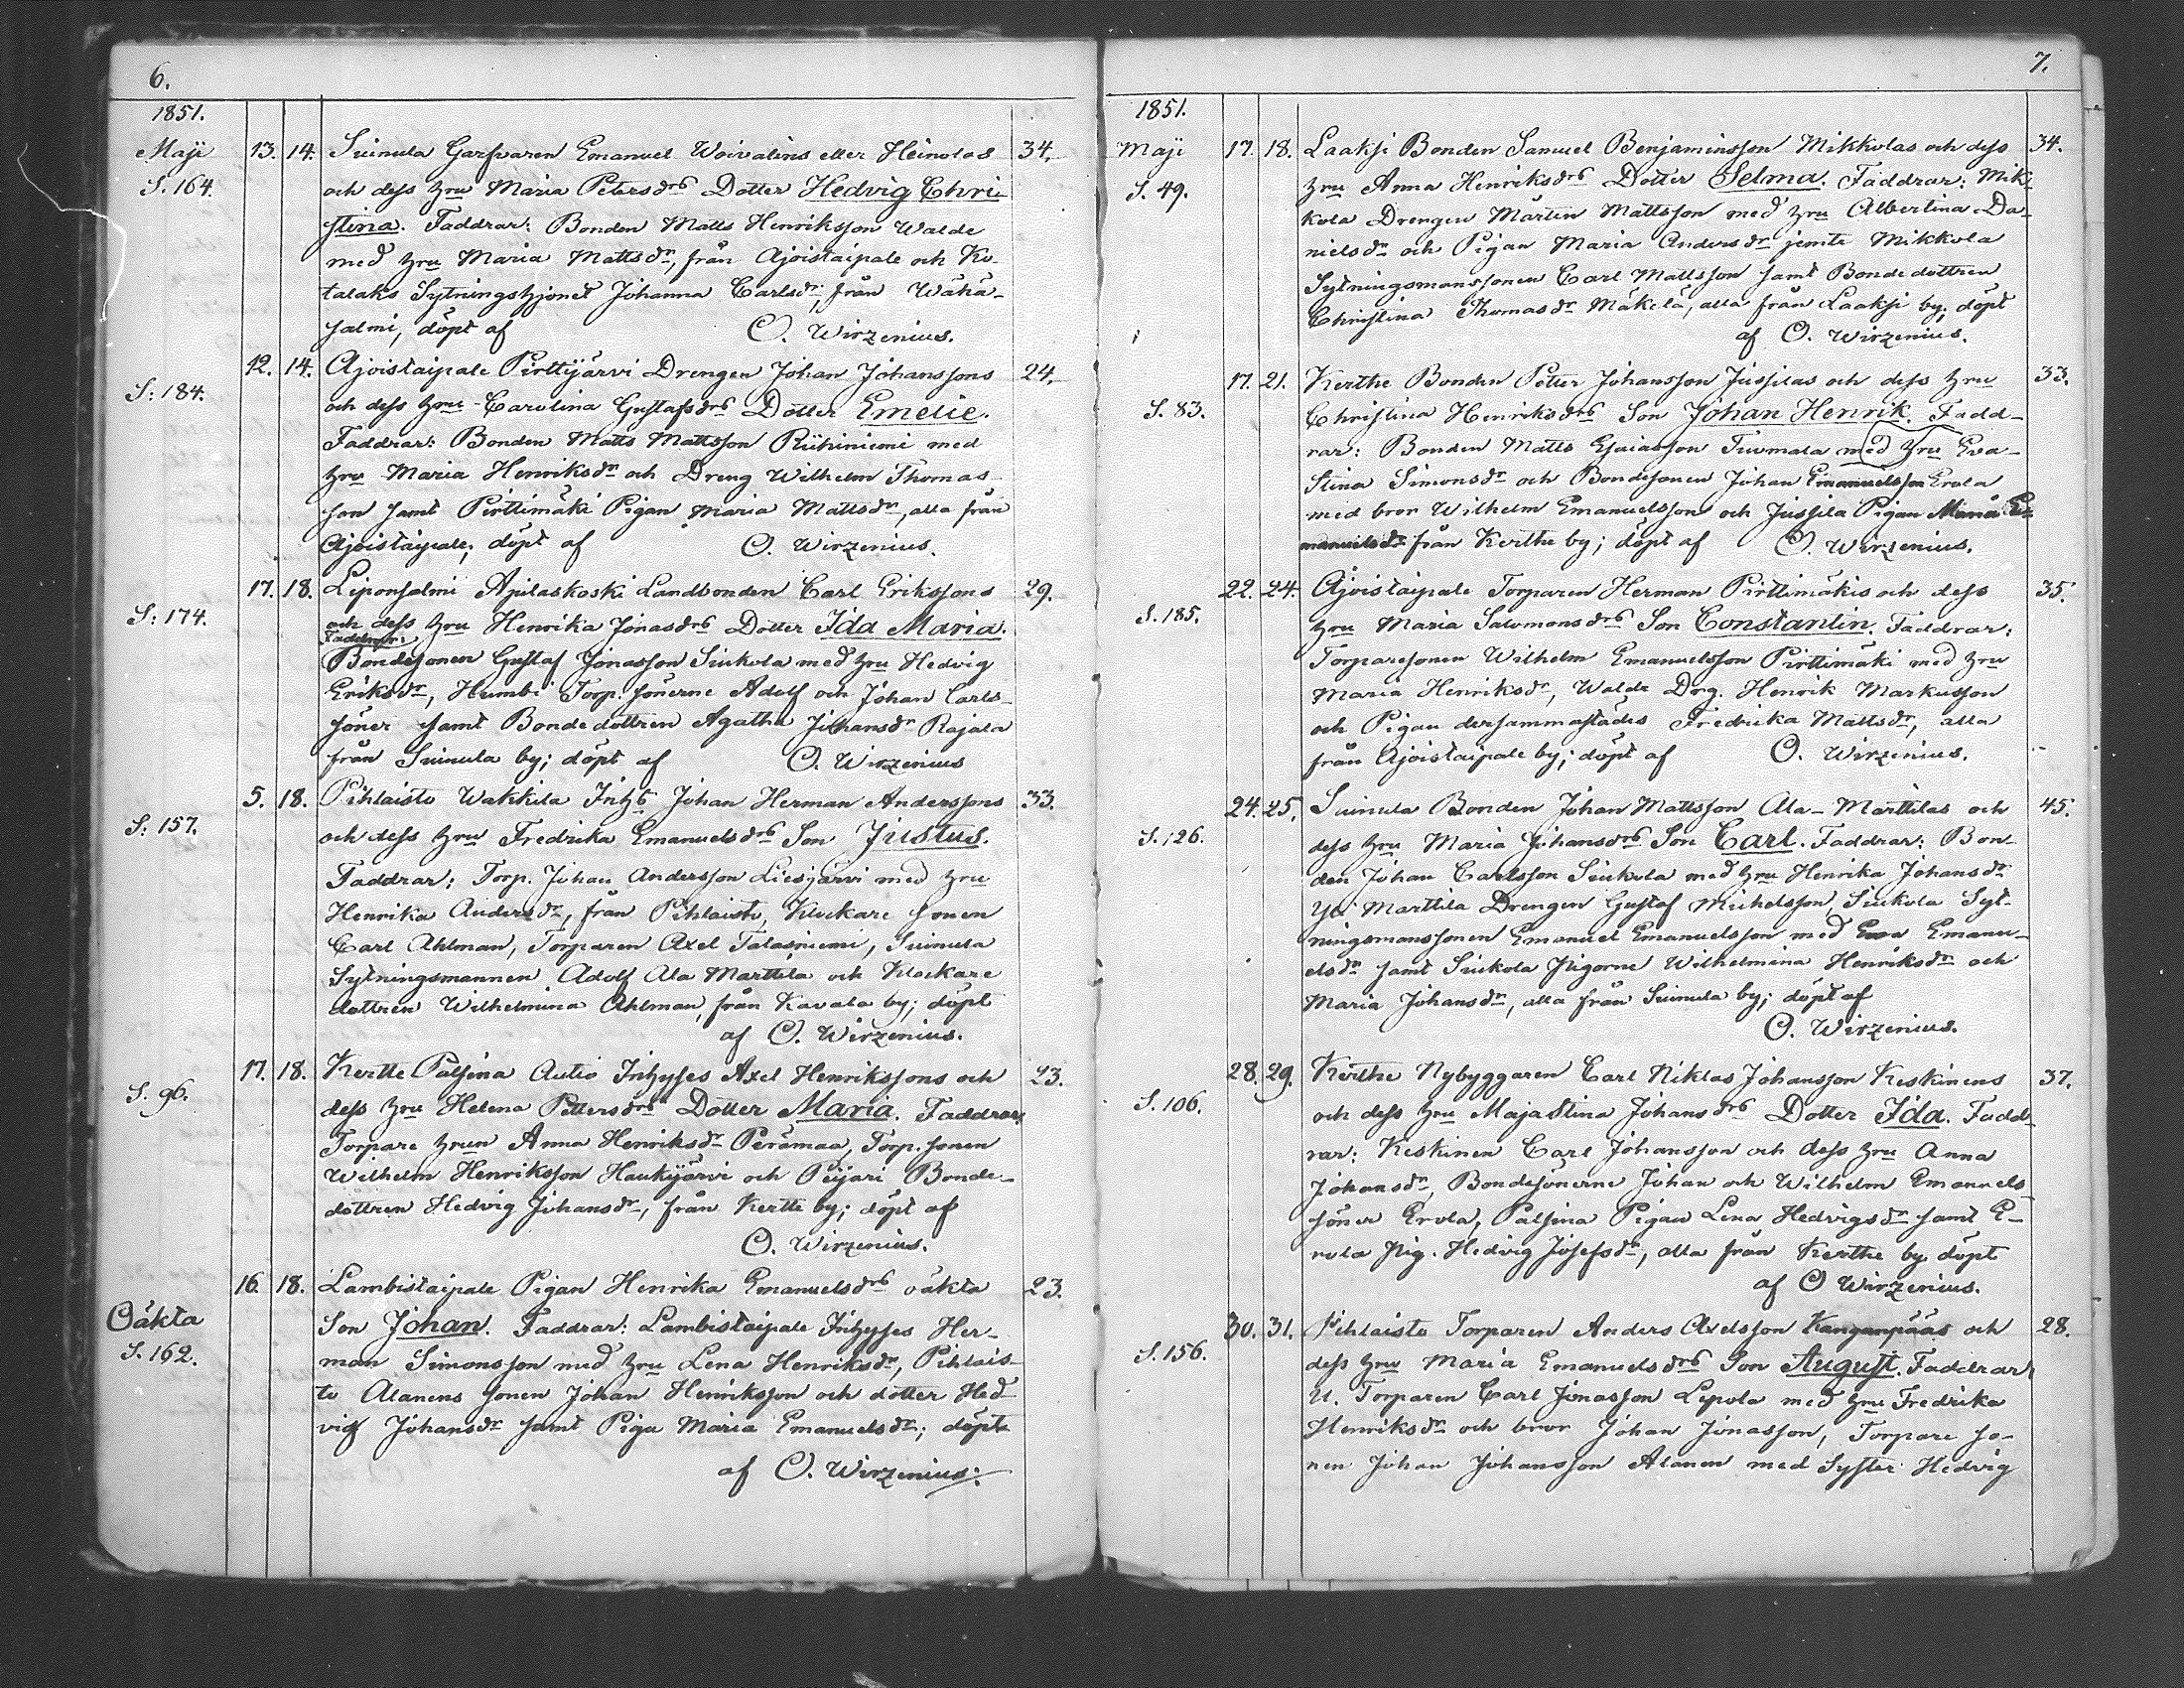 6.
1851.
Maji 13. 14. Suinula Garfvaren Emanuel Woivalins eller Heinolas 34.
S. 164. och dess hru Maria Petersdrs Dotter Hedvig Chri-
stina. Faddrar: Bonden Matts Henriksson Walde
med hru Maria Mattsdr, från Ajoistaipale och Ko-
talaks Sytningshjonet Johanna Carlsdr, från Wähä-
salmi, döpt af O. Wirzenius.
12. 14. Ajoistaipale Pirttijärvi Drengen Johan Johanssons 24.
S: 184. och dess hru Carolina Gustafsdrs Dotter Emelie.
Faddrar: Bonden Matts Mattsson Riihiniemi med
hru Maria Henriksdr och Dreng Wilhelm Thomas-
son samt Pirttimäki Pigan Maria Mattsdr, alla från
Ajoistaipale, döpt af O. Wirzenius.
17. 18. Liponsalmi Ajulaskoski Landbonden Carl Erikssons 29.
S: 174. och dess hru Henrika Jonasdrs Dotter Ida Maria.
Faddrar:
Bondesonen Gustaf Jonasson Siukola med hru Hedvig
Eriksdr, Humbi Torp. sönerne Adolf och Johan Carls-
söner samt Bondedottren Agatha Johansdr Rajala
från Suinula by; döpt af O. Wirzenius
5. 18. Pihlaisto Wakkila Inhs Johan Herman Anderssons 33.
S: 157. och dess hru Fredrika Emanuelsdrs Son Justus.
Faddrar: Torp. Johan Andersson Liesjärvi med hru
Henrika Andersdr, från Pihlaisto, Klockare sonen
Carl Ahlman, Torparen Axel Talasniemi, Suinula
Sytningsmannen Adolf Ala Marttila och Klockare
dottren Wilhelmina Ahlman, från Kavala by; döpt
af O. Wirzenius.
17. 18. Kertte Palsina Autio Inhyses Axel Henrikssons och 23.
S. 96. dess hru Helena Pettersdrs Dotter Maria. Faddrar:
Torpare hrun Anna Henriksdr Perämaa, Torp. sonen
Wilhelm Henriksson Haukijärvi och Peijari Bonde-
dottren Hedvig Johansdr, från Kertte by; döpt af
O. Wirzenius.
16. 18. Lambistaipale Pigan Henrika Emanuelsdrs oäkta 23.
Oäkta Son Johan. Faddrar: Lambistaipale Inhyses Her-
S. 162. man Simonsson med hru Lena Henriksdr, Pihlais-
to Alanens sonen Johan Henriksson och dotter Hed-
vig Johansdr samt Piga Maria Emanuelsdr; döpt
af O. Wirzenius.
7.
1851.
Maji 17. 18. Laaksi Bonden Samuel Benjaminsson Mikkolas och dess 34.
S. 49. hru Anna Henriksdrs Dotter Selma. Faddrar: Mik-
kola Drengen Mårten Mattsson med hru Albertina Da-
nielsdr och Pigan Maria Andersdr jemte Mikkola
Sytningsmanssonen Carl Mattsson samt Bondedottren
Christina Thomasdr Mäkelä, alla från Laaksi by, döpt
af O. Wirzenius.
17. 21. Kerthe Bonden Petter Johansson Jussilas och dess hru 33.
S. 83. Christina Henriksdrs Son Johan Henrik. Fadd-
rar: Bonden Matts Esaiasson Tuomala med hru Eva
Stina Simonsdr och Bondesonen Johan Emanuelsson Erola
med bror Wilhelm Emanuelsson och Jussila Pigan Maria E-
manuelsdr från Kerthe by; döpt af O. Wirzenius.
22. 24. Ajoistaipale Torparen Herman Pirttimäkis och dess 35.
S. 185. hru Maria Salomonsdrs Son Constantin. Faddrar:
Torparesonen Wilhelm Emanuelsson Pirttimäki med hru
Maria Henriksdr, Walde Drg. Henrik Markusson
och Pigan dersammastädes Fredrika Mattsdr, alla
från Ajoistaipale by; döpt af O. Wirzenius.
24. 25. Suinula Bonden Johan Mattsson Ala-Marttilas och 45.
S. 126. dess hru Maria Johansdrs Son Carl. Faddrar: Bon-
den Johan Carlsson Siukola med hru Henrika Johansdr
Yli Marttila Drengen Gustaf Michelsson, Siukola Syt-
ningsmanssonen Emanuel Emanuelsson med Eva Emanu-
elsdr samt Siukola Pigorne Wilhelmina Henriksdr och
Maria Johansdr, alla från Suinula by; döpt af
O. Wirzenius.
28. 29. Kerthe Nybyggaren Carl Niklas Johansson Keskinens 37.
S. 106. och dess hru Maja Stina Johansdrs Dotter Ida. Fadd-
rar: Keskinen Carl Johansson och dess hru Anna
Johansdr, Bondesönerne Johan och Wilhelm Emanuels-
söner Erola, Palsina Pigan Lena Hedvigsdr samt E-
rola Pig. Hedvig Josefsdr, alla från Kerthe by döpt
af O Wirzenius.
30. 31. Pihlaisto Torparen Anders Axelsson Kanganpääs och 28.
S. 156. dess hru Maria Emanuelsdrs Son August. Faddrar
U. Torparen Carl Jonasson Lepola med hru Fredrika
Henriksdr och bror Johan Jonasson, Torpare so-
nen Johan Johansson Alanen med Syster Hedvig